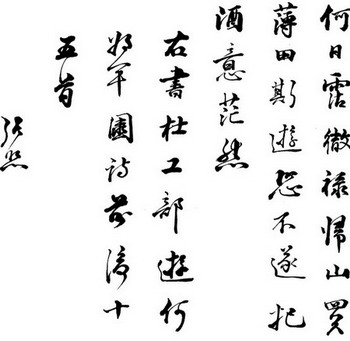 何日霑微禄歸山買
薄田斯遊恐不遂把
酒意茫然
右書杜工部遊何
將軍園詩前後十
五首
張照